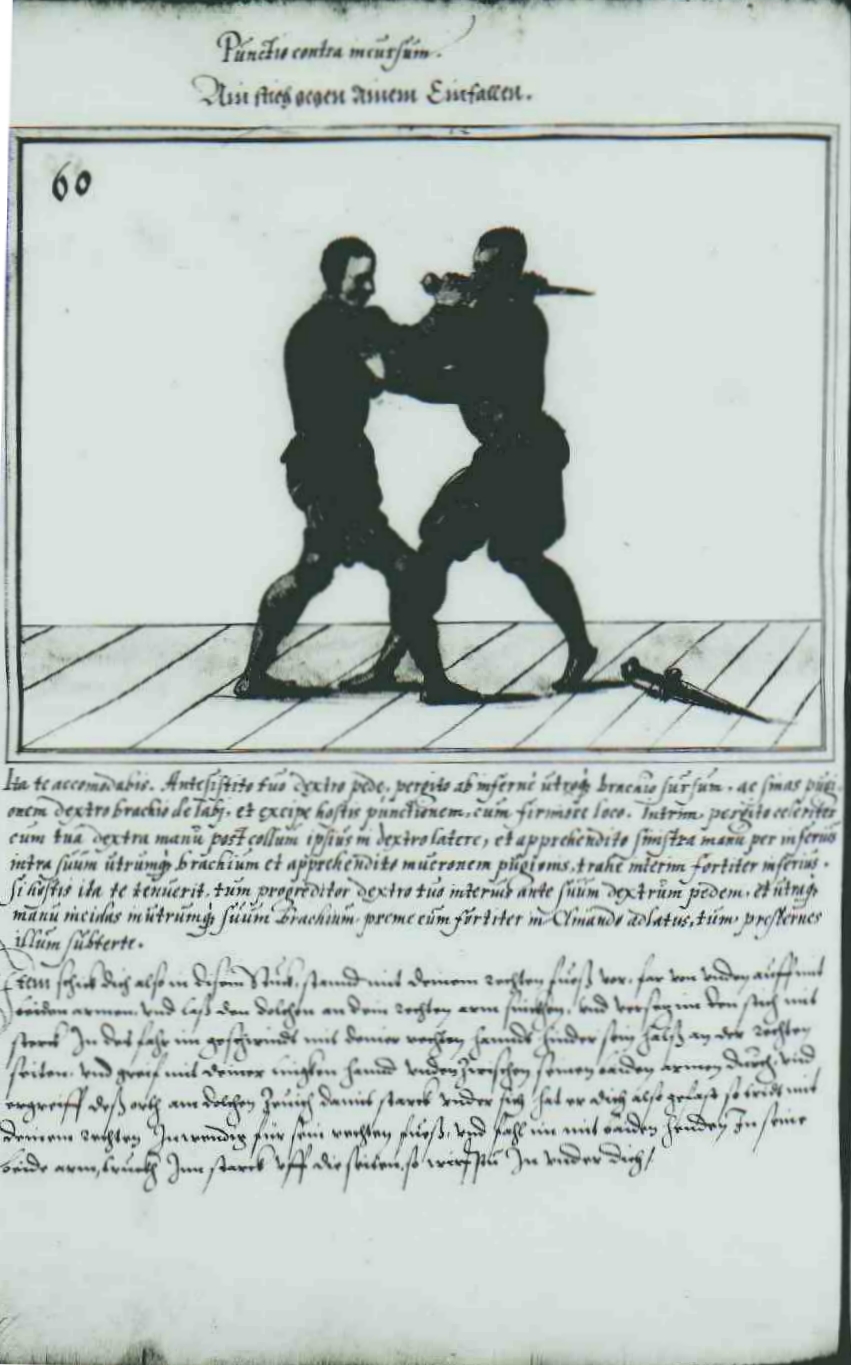 Punctio contra incursum.
Ain stich gegen ainem Einfallen.
60
Ita te accomodabis. Antesistito tuo dextro pede, pergito ab infernè utroq; brachio sursum, ac sinas pugi-
onem dextro brachio delabj, et excipe hostis punctionem, cum firmiore loco. Intrim pergito celeriter
cum tua dextra manu post collum ipsius in dextro latere, et apprehendito sinistra manu per inferius
intra suum utrumq; brachium et apprehendito mucronem pugionis, trahe interim fortiter inferius.
Si hostis ita te tenuerit, tum progreditor dextro tuo interius ante suum dextrum pedem, et utraq;
manu incidas in utrumq; suum brachium preme eum fortiter in ad latus, tum prosternes
illum subter te.
Item schick dich also in disem Stuck, stannd mit deinem rechten fuoß vor, far von unden auff mit
beiden armen, und laß den dolchen an dem rechten arm sinckhen, und versetz im den stich mit
sterck In des fahr im geschwindt mit deiner rechten hannd hinder sein halß an der rechten
seiten, und greif mit deiner lingken hannd unden zwischen seinen baiden armen durch, und
ergreiff deß orth am dolchen Zeuch damit starck under sich hat er dich also gefast so tridt mit
deinem rechten Inwendig für sein rechten fuoß, und fahl im mit baiden henden In seine
beide arm, truckh Inn starck uff die seiten, so wirfstu In under dich/